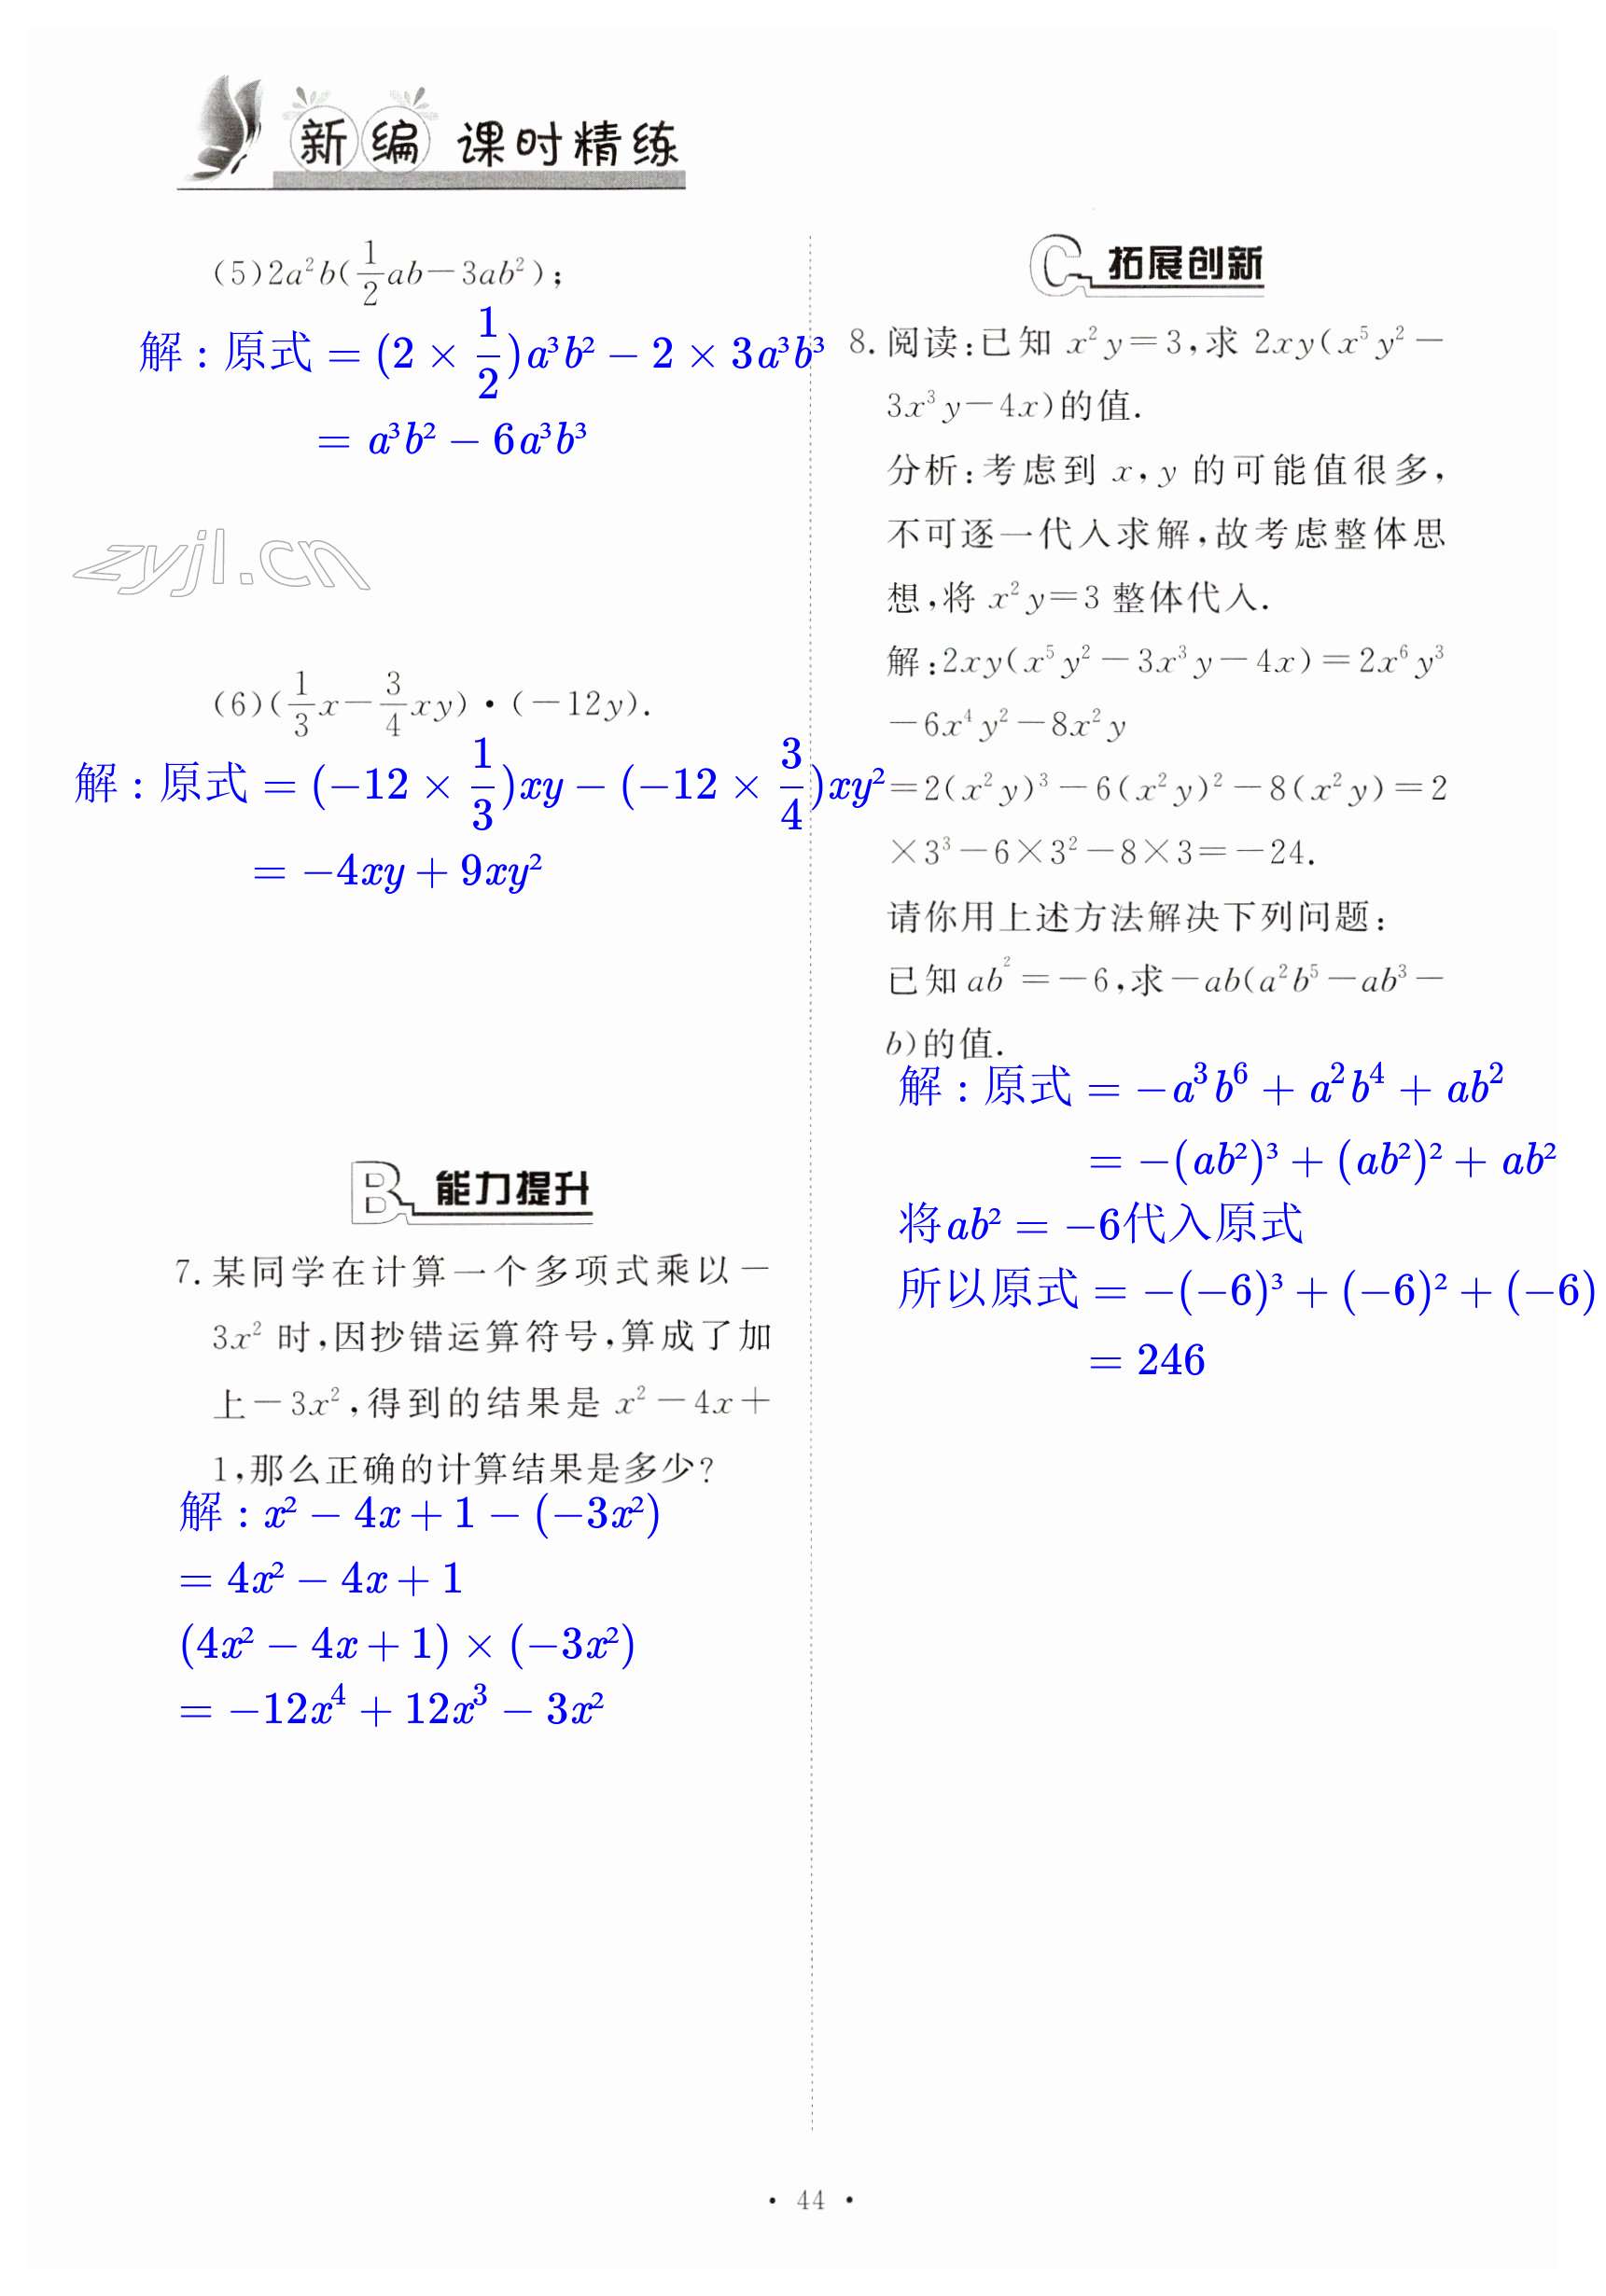 新编 课时精练
(5)2a²b(1/2ab－3ab²)；
解：原式 = (2 × 1/2)a³b² − 2 × 3a³b³
= a³b² − 6a³b³
zyjl.cn
(6)(1/3x－3/4xy)·(－12y).
解：原式 = (−12 × 1/3)xy − (−12 × 3/4)xy²
= −4xy + 9xy²
B 能力提升
7. 某同学在计算一个多项式乘以－
3x² 时,因抄错运算符号,算成了加
上－3x²,得到的结果是 x²－4x＋
1,那么正确的计算结果是多少?
解：x² − 4x + 1 − (−3x²)
= 4x² − 4x + 1
(4x² − 4x + 1) × (−3x²)
= −12x⁴ + 12x³ − 3x²
C 拓展创新
8. 阅读:已知 x²y＝3,求 2xy(x⁵y²－
3x³y－4x)的值.
分析:考虑到 x,y 的可能值很多,
不可逐一代入求解,故考虑整体思
想,将 x²y＝3 整体代入.
解:2xy(x⁵y²－3x³y－4x)＝2x⁶y³
－6x⁴y²－8x²y
＝2(x²y)³－6(x²y)²－8(x²y)＝2
×3³－6×3²－8×3＝－24.
请你用上述方法解决下列问题:
已知 ab²＝－6,求－ab(a²b⁵－ab³－
b)的值.
解：原式 = −a³b⁶ + a²b⁴ + ab²
= −(ab²)³ + (ab²)² + ab²
将ab² = −6代入原式
所以原式 = −(−6)³ + (−6)² + (−6)
= 246
· 44 ·